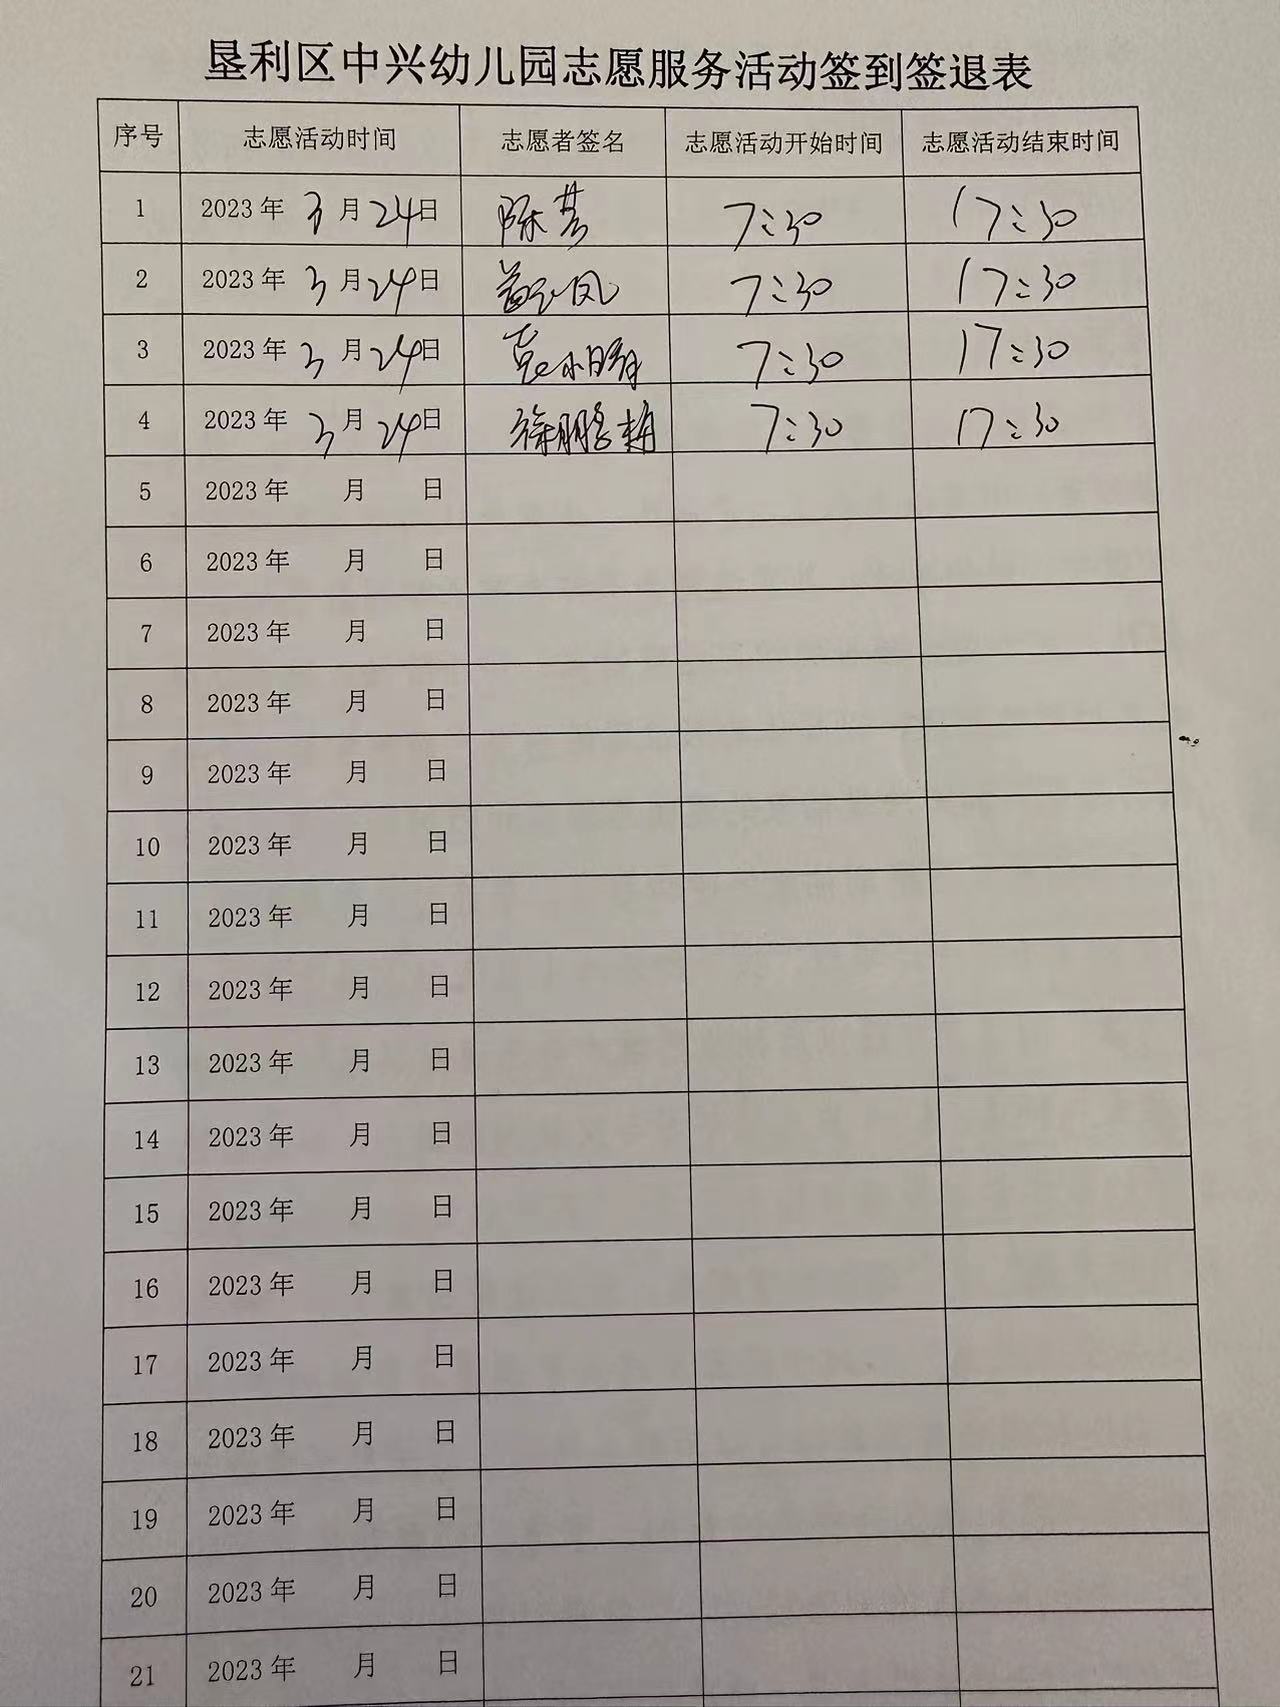 垦利区中兴幼儿园志愿服务活动签到签退表
序号 志愿活动时间 志愿者签名 志愿活动开始时间 志愿活动结束时间
1 2023年 3月24日 陈芸 7:30 17:30
2 2023年 3月24日 7:30 17:30
3 2023年 3月24日 7:30 17:30
4 2023年 3月24日 徐鹏 7:30 17:30
5 2023年 月 日
6 2023年 月 日
7 2023年 月 日
8 2023年 月 日
9 2023年 月 日
10 2023年 月 日
11 2023年 月 日
12 2023年 月 日
13 2023年 月 日
14 2023年 月 日
15 2023年 月 日
16 2023年 月 日
17 2023年 月 日
18 2023年 月 日
19 2023年 月 日
20 2023年 月 日
21 2023年 月 日